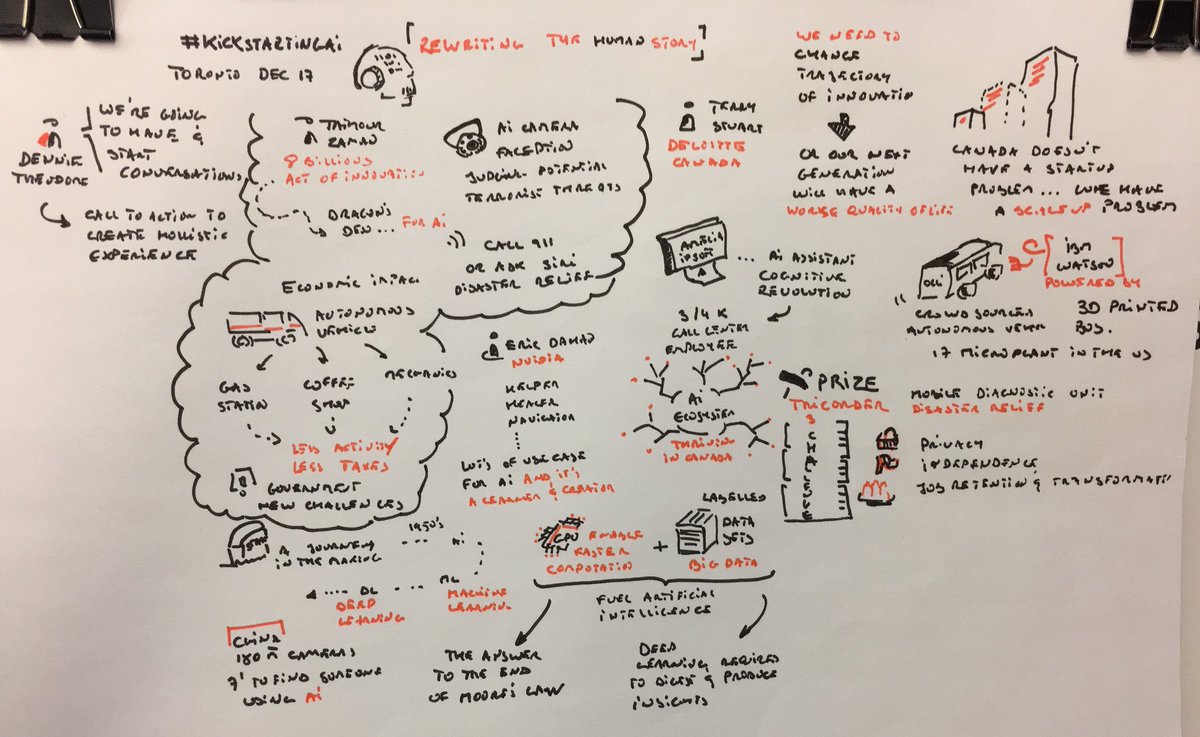 #KICKSTARTINGAI
TORONTO DEC 17
[REWRITING THE HUMAN STORY]
DENNIE
THEODORE
WE'RE GOING
TO HAVE &
START
CONVERSATIONS
CALL TO ACTION TO
CREATE HOLLISTIC
EXPERIENCE
TAIMOUR
ZAMAN
8 BILLIONS
ACT OF INNOVATION
DRAGON'S
DEN... FOR Ai
Ai CAMERA
JUDGING POTENTIAL
TERRORIST THREATS
CALL 911
OR ASK SIRI
DISASTER RELIEF
ECONOMIC IMPACT
AUTONOMOUS
VEHICLE
GAS
STATION
COFFEE
SHOP
MECHANICS
LESS ACTIVITY
LESS TAXES
GOVERNMENT
NEW CHALLENGES
TERRY
STUART
DELOITTE
CANADA
WE NEED TO
CHANGE
TRAJECTORY
OF INNOVATIO
OR OUR NEXT
GENERATION
WILL HAVE A
WORSE QUALITY OF LIFE
CANADA DOESN'T
HAVE A STARTUP
PROBLEM... WE HAVE
A SCALEUP PROBLEM
AMELIA
IPSOFT
... Ai ASSISTANT
COGNITIVE
REVOLUTION
3/4 K
CALL CENTER
EMPLOYEE
OLLI
[IBM
WATSON]
POWERED BY
CROWD SOURCED
AUTONOMOUS
3D PRINTED
BUS.
17 MICROPLANT IN THE US
ERIC DAMAD
NVIDIA
HELPER
HEALER
NAVIGATION
LOTS OF USE CASE
FOR Ai AND IT'S
A LEARNER & CREATOR
Ai
ECOSYSTEM
THRIVING
IN CANADA
X PRIZE
TRICORDER
MOBILE DIAGNOSTIC UNIT
DISASTER RELIEF
3
CHALLENGES
PRIVACY
INDEPENDENCE
JOB RETENTION & TRANSFORMATI
START
A JOURNEY
IN THE MAKING
1950's
Ai
ML
MACHINE
LEARNING
DL
DEEP
LEARNING
GPU ENABLE
FASTER
COMPUTATION
+
LABELLED
DATA
SETS
BIG DATA
FUEL ARTIFICIAL
INTELLIGENCE
CHINA
180 M CAMERAS
7' TO FIND SOMEONE
USING Ai
THE ANSWER
TO THE END
OF MOORE'S LAW
DEEP
LEARNING REQUIRED
TO DIGEST & PRODUCE
INSIGHTS